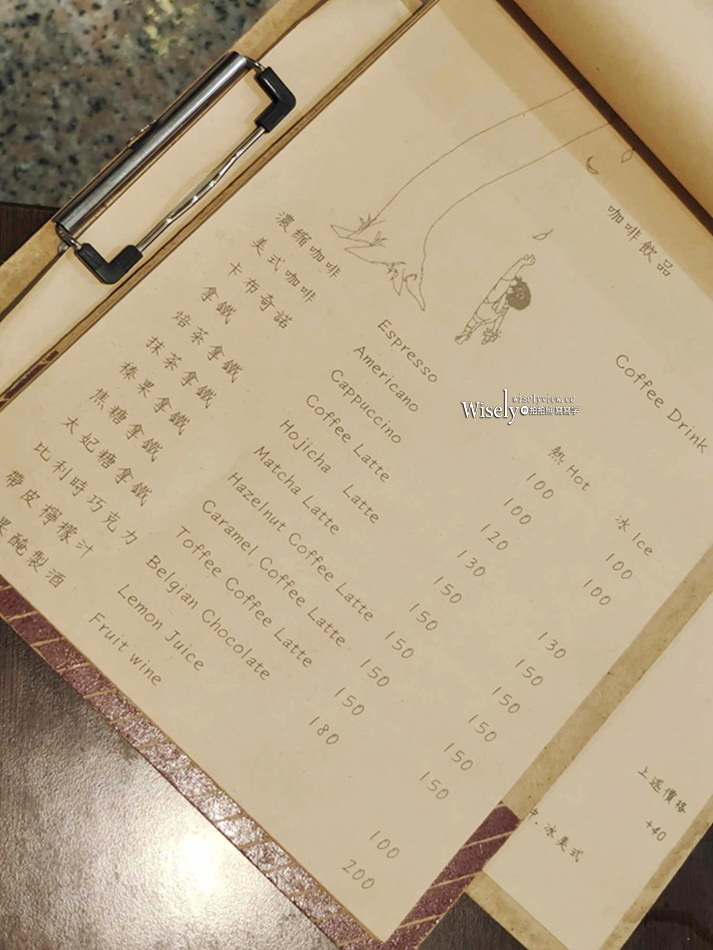 咖啡飲品 Coffee Drink
熱 Hot 冰 Ice
濃縮咖啡 Espresso 100 100
美式咖啡 Americano 100 100
卡布奇諾 Cappuccino 120
拿鐵 Coffee Latte 130 130
焙茶拿鐵 Hojicha Latte 150 150
抹茶拿鐵 Matcha Latte 150 150
榛果拿鐵 Hazelnut Coffee Latte 150 150
焦糖拿鐵 Caramel Coffee Latte 150 150
太妃糖拿鐵 Toffee Coffee Latte 150 150
比利時巧克力 Belgian Chocolate 180
帶皮檸檬汁 Lemon Juice 100
果醃製酒 Fruit wine 200
wiselyview.cc
Wisely 拍拍照 寫寫字
上述價格 +40
冰美式